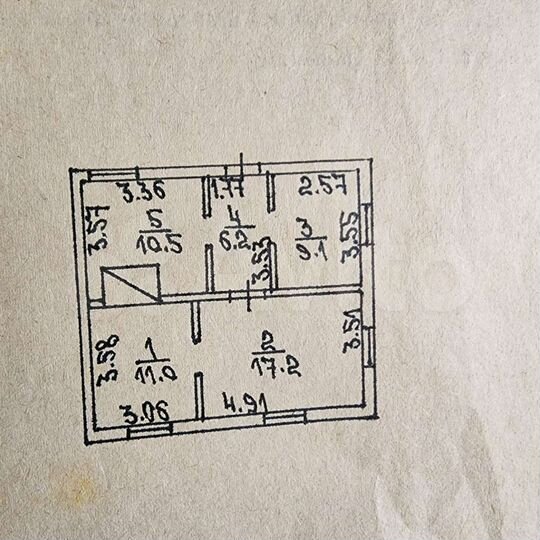 3.36
1.77
2.57
3.57
5
10.5
4
6.2
3
9.1
3.55
3.53
3.58
1
11.0
2
17.2
3.51
3.06
4.91